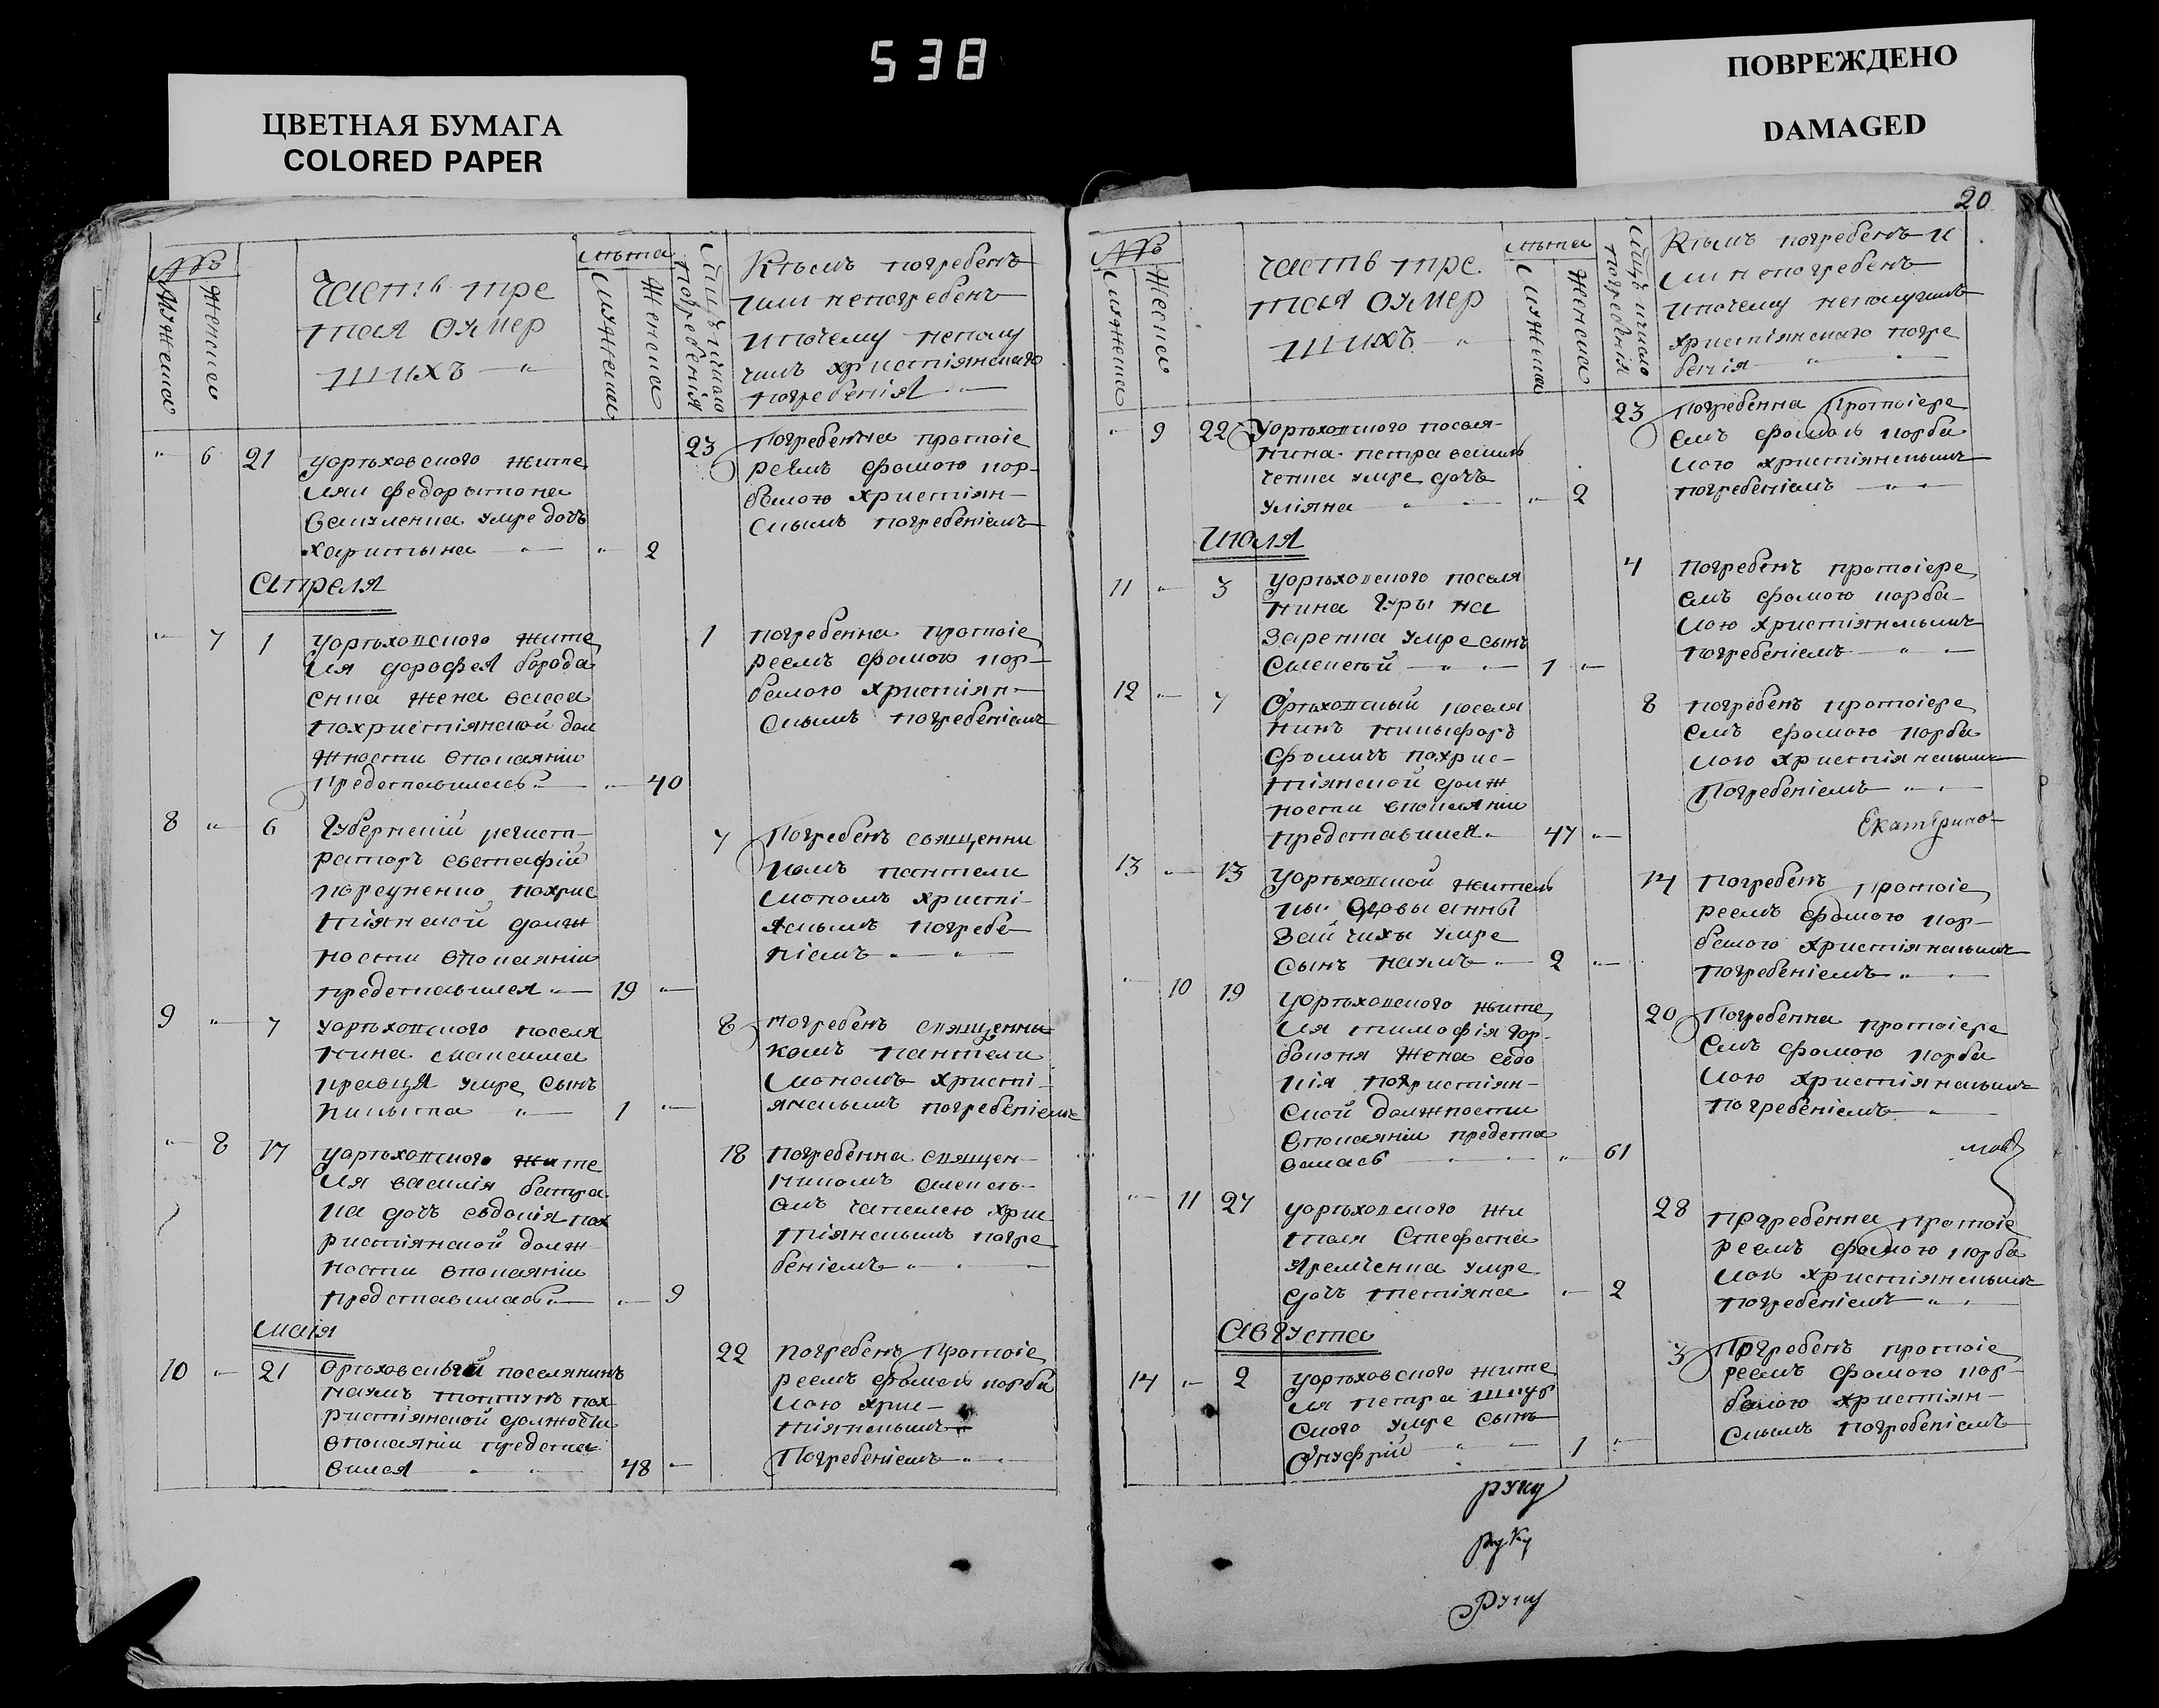 538
ЦВЕТНАЯ БУМАГА
COLORED PAPER
ПОВРЕЖДЕНО
DAMAGED
20
№
Мужеска
Женска
Часть тре
тая оумер
шихъ
лѣта
Мужеска
Женска
погребенія
Кѣмъ погребенъ
или непогребенъ
ипочему неполу
чилъ христіянскаго
погребенія
6 21 23
уорѣховского жите
харитына 2
умре дочь
погребенна протоіе
реемъ фомою кор-
бамою христіян-
скымъ погребеніемъ
Апреля
7 1 1
уорѣховского жите
ля дорофея борода
енка жена васса
похристіянской дол
жности впокаянии
представилась 40
погребенна протоіе
реемъ фомою кор-
бамою христіян-
скымъ погребеніемъ
8 6 7
Губернскій регист-
раторъ евстафій
похрис
тіянской долж
ности впокаянии
представился 19
Погребенъ священни
комъ пантели
мономъ христі-
янскымъ погребе-
ніемъ
9 7 8
уорѣховского поселя
нина максима
правця умре сынъ
никыта 1
погребенъ священни
комъ пантели
мономъ христі-
янскымъ погребеніемъ
8 17 18
уорѣховского жите
ля василія батра
ка дочь евдокія пох
ристіянской долж
ности впокаянии
представилась 9
погребенна священ-
никомъ алексѣ-
емъ христіянскымъ погре
беніемъ
маія
10 21 22
Орѣховскый поселянинъ
наумъ товтунъ пох
ристіянской должности
впокаянии предста
вился 48
погребенъ протоіе
реемъ фомою корба
мою хрис-
тіянскымъ
Погребеніемъ
№
Мужеска
Женска
часть тре
тая оумер
шихъ
лѣта
Мужеска
Женска
погребенія
Кѣмъ погребенъ и
ли непогребенъ
ипочему неполучилъ
христіянскаго погре
бенія
9 22 23
уорѣховского поселя-
нина петра васил
ченка умре дочь
уліяна 2
погребенна протоіере
емъ фомою корба
мою христіянскымъ
погребеніемъ
Июля
11 3 4
уорѣховского поселя
нина Гуры на
заренка умре сынъ
Алексѣй 1
погребенъ протоіере
емъ фомою корба-
мою христіянскымъ
погребеніемъ
12 7 8
Орѣховскый поселя
нинъ никыфоръ
фомичъ похрис-
тіянской долж
ности впокаянии
представился 47
погребенъ протоіере
емъ фомою корба
мою христіянскымъ
Погребеніемъ
Екатерино
13 13 14
уорѣховской жытель
кы вдовы анны
Зайчихы умре
сынъ наумъ 2
погребенъ протоіе
реемъ фомою кор-
бамою христіянскымъ
погребеніемъ
10 19 20
уорѣховского жите
ля тимофія гор-
боконя жена евдо
кія похристіян-
ской должности
впокаянии предста
вилась 61
Погребенна протоіере
емъ фомою корба
мою христіянскымъ
погребеніемъ
11 27 28
уорѣховского жи
теля Стефана
Яремченка умре
дочь тетіяна 2
погребенна протоіе
реемъ фомою корба
мою христіянскымъ
погребеніемъ
Августа
14 2 3
уорѣховского жите
ля петра
ского умре сынъ
Онуфрій 1
Погребенъ протоіе
реемъ фомою кор-
бамою христіян-
скымъ погребеніемъ
руку
руку
руку